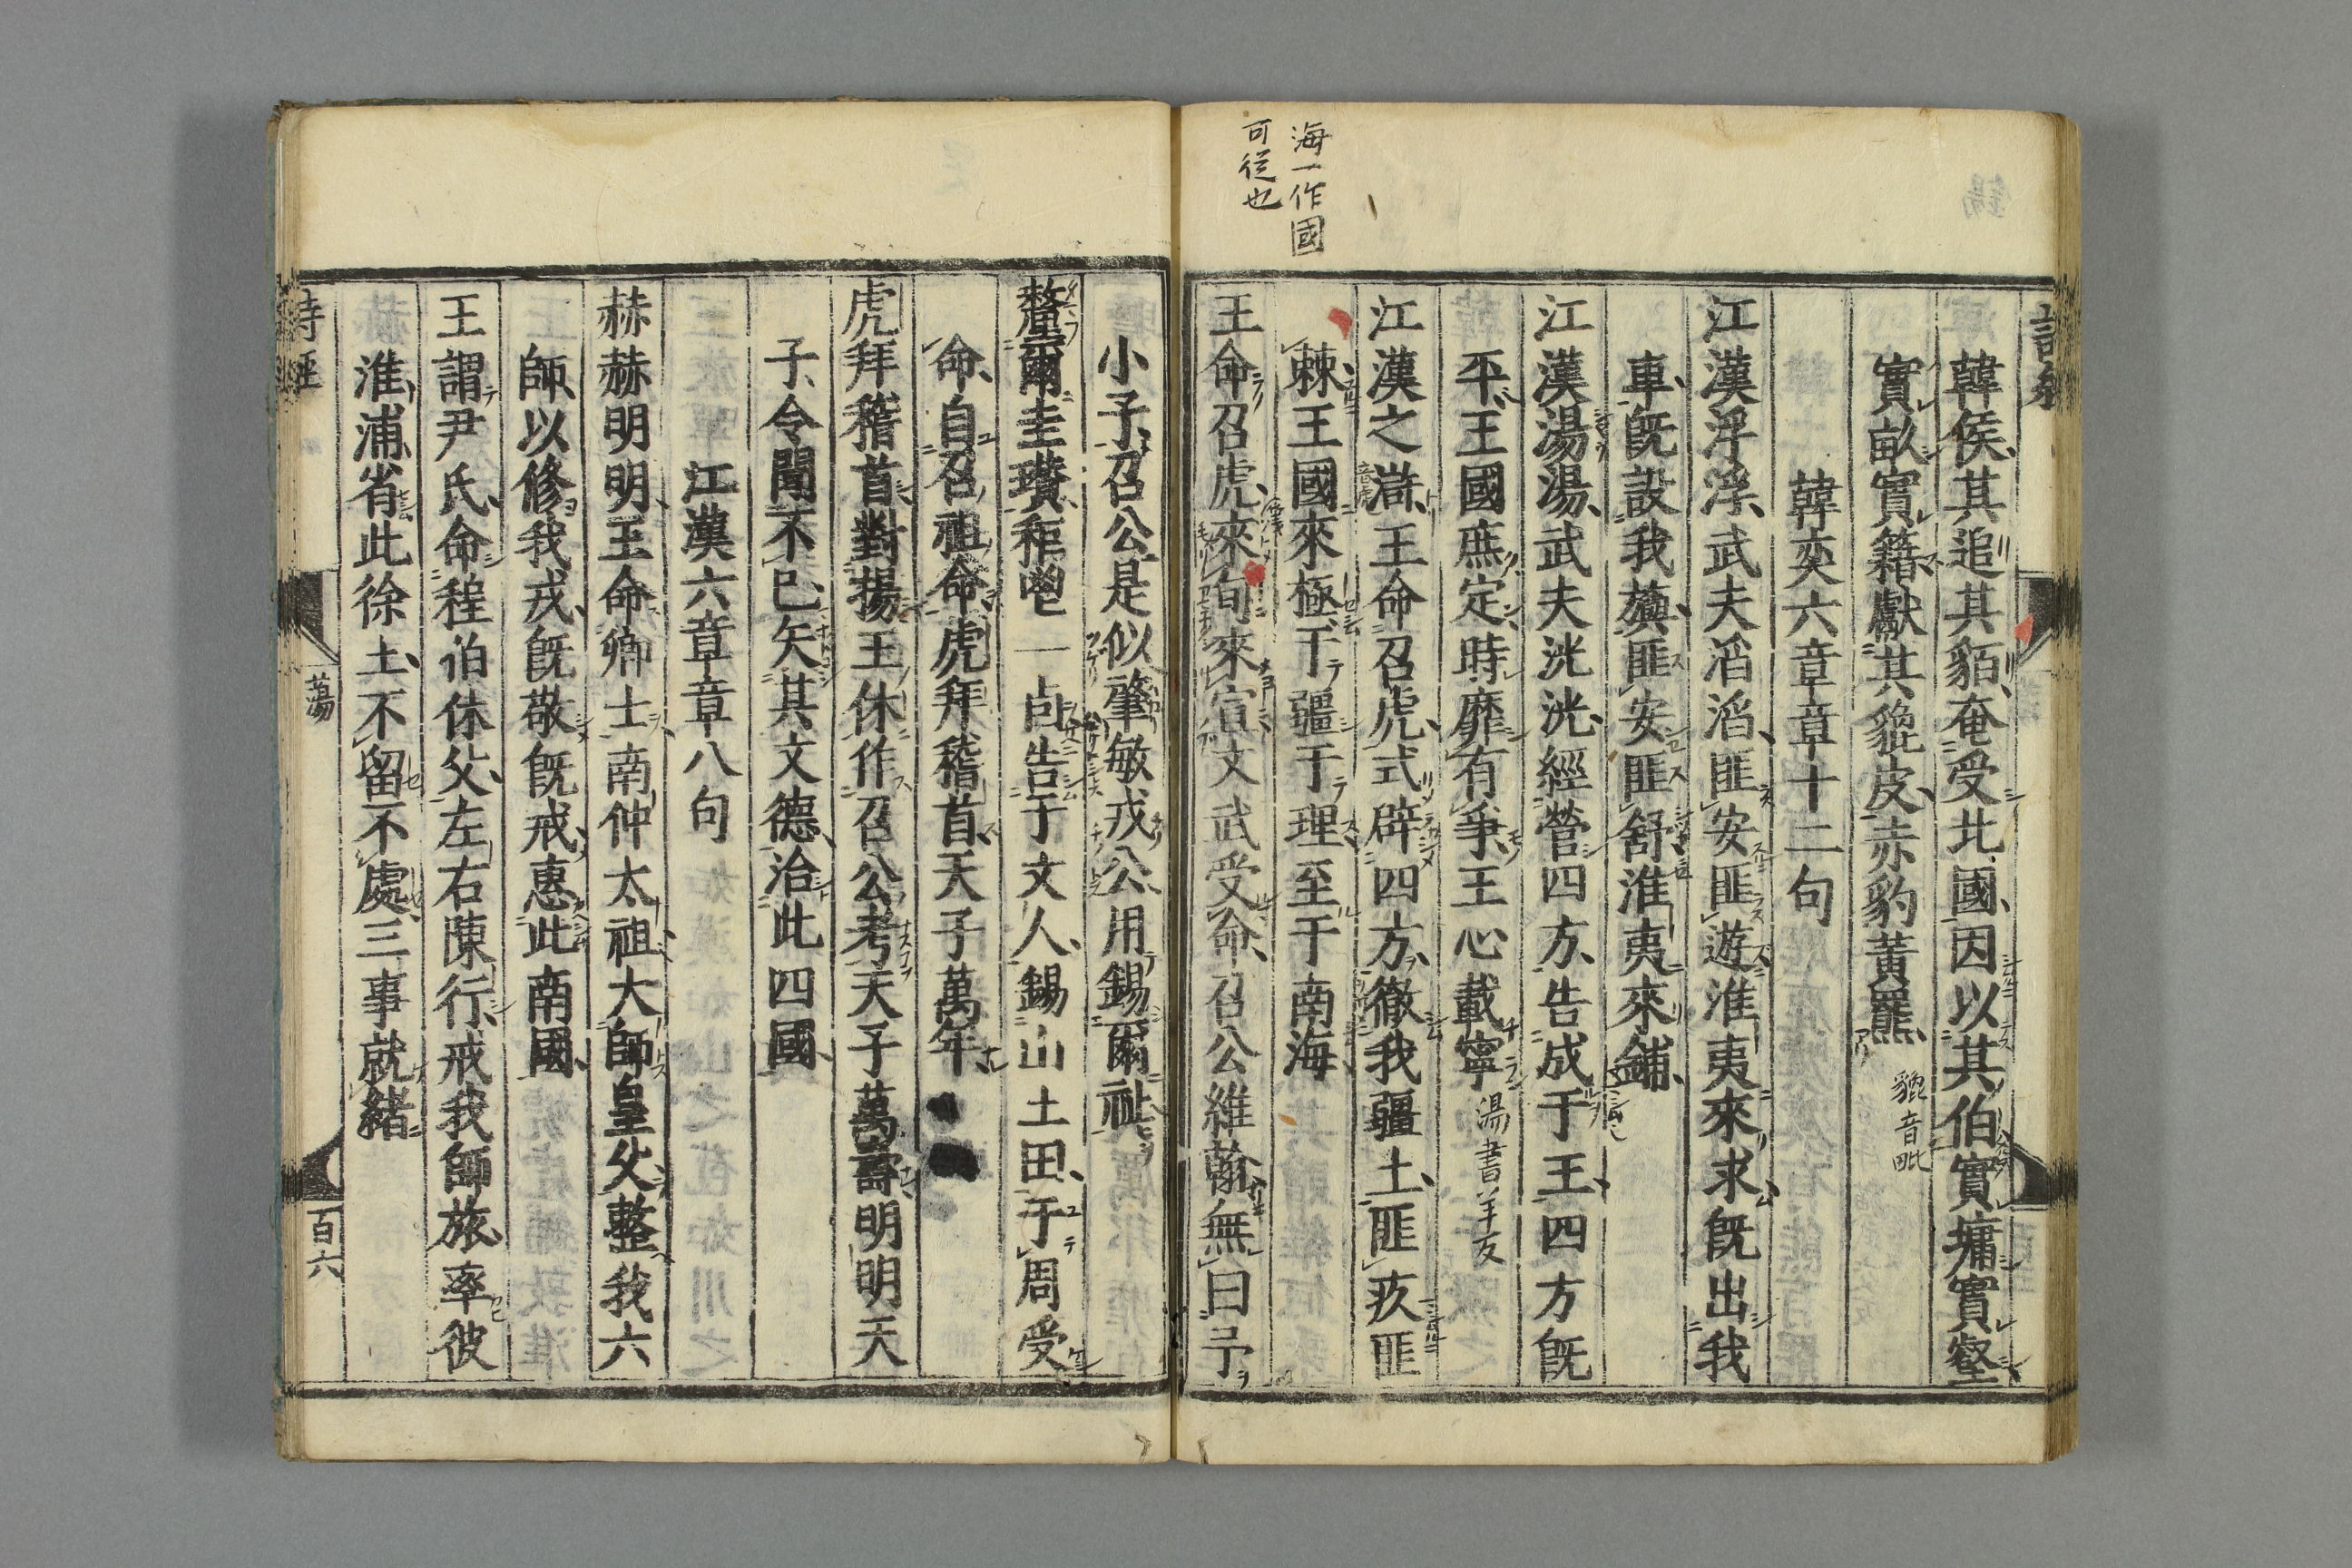 海一作國
可從也
韓侯其追其貊奄受北國因以其伯實墉實壑
實畝實籍獻其貔皮赤豹黃羆
貔音毗
韓奕六章章十二句
江漢浮浮武夫滔滔匪安匪遊淮夷來求旣出我
車旣設我旟匪安匪舒淮夷來鋪
江漢湯湯武夫洸洸經營四方告成于王四方旣
平王國庶定時靡有爭王心載寧
湯書羊反
江漢之滸王命召虎式辟四方徹我疆土匪疚匪
音虎
棘王國來極于疆于理至于南海
王命召虎來旬來宣文武受命召公維翰無曰予
小子召公是似肇敏戎公用錫爾祉
釐爾圭瓚秬鬯一卣告于文人錫山土田于周受
命自召祖命虎拜稽首天子萬年
虎拜稽首對揚王休作召公考天子萬壽明明天
子令聞不已矢其文德洽此四國
江漢六章章八句
赫赫明明王命卿士南仲太祖大師皇父整我六
師以修我戎旣敬旣戒惠此南國
王謂尹氏命程伯休父左右陳行戒我師旅率彼
淮浦省此徐土不留不處三事就緒
詩經
蕩
百六